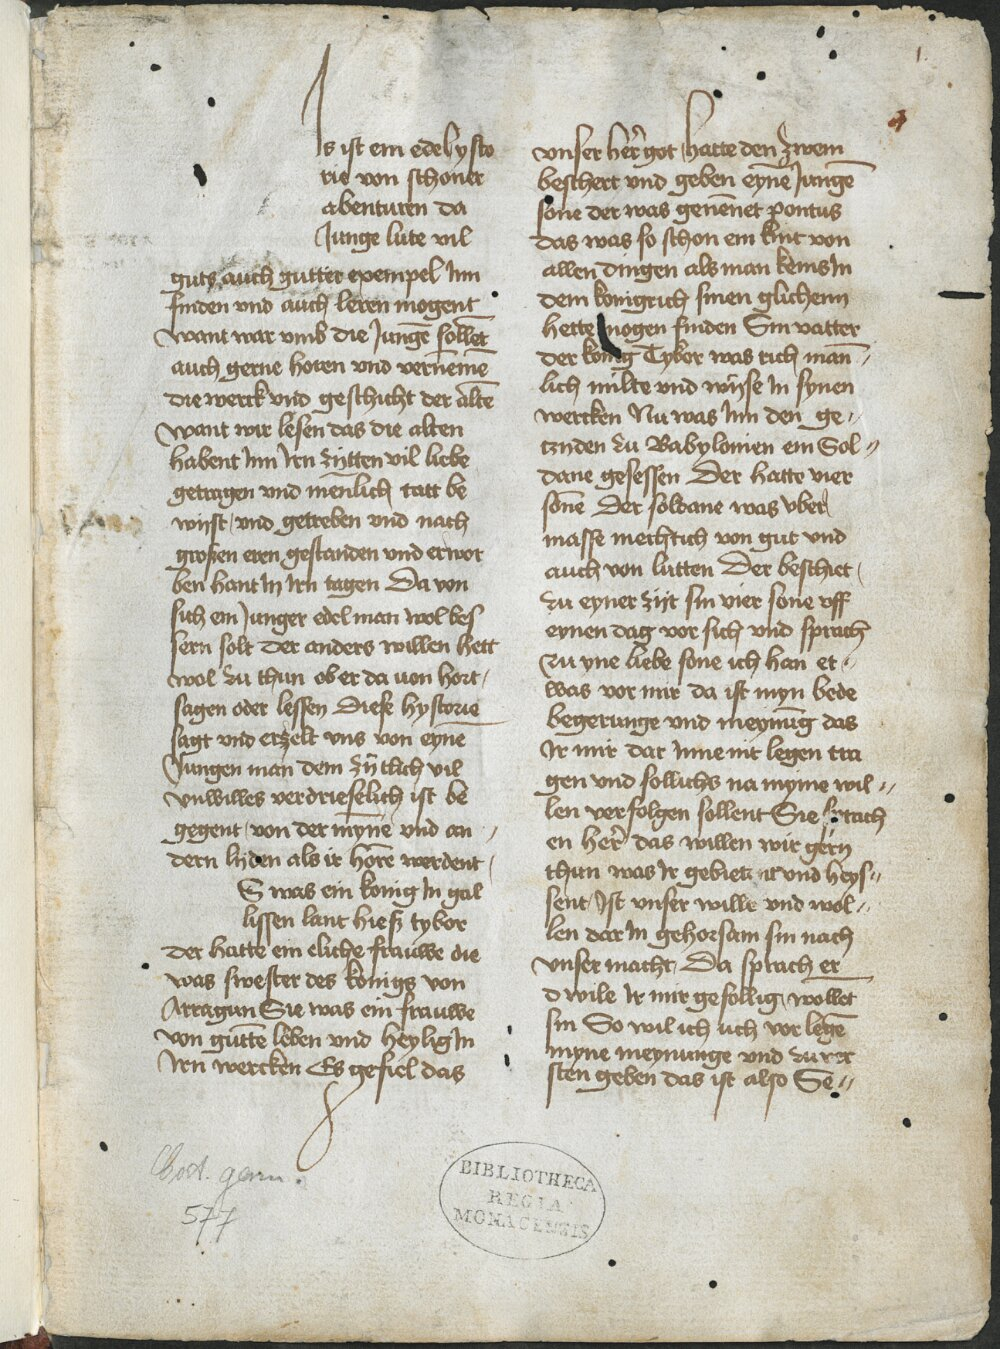 Is ist ein edel hysto
rie von schoner
abenturen da
Junge lute vil
guts auch gutter exempel Inn
finden vnd auch leren mogent
want war vmb die Jungē sollēt
auch gerne horen vnd vernēmē
die werck vnd geschicht der altē
want wir lesen das die alten
habent Inn Irn zijtten vil liebe
getragen vnd menlich tatt be
wijst / vnd getreben vnd nach
großen eren gestanden vnd erwor
ben hant In Irn tagen Da von
sich ein Junger edel man wol bes
sern solt der anders willen hett
wol zu thun ob er da von hort /
sagen oder lessen Diese hystorie
sagt vnd erzelt vns von eynē
Jungen man dem zijtlich vil
vnwilles verdrießelich ist be
gegent / von der mynē vnd an //
dern lijden als ir hōre werdent /
S was ein konig In gal
lissen lant hieß tybor
der hatte ein eliche frauwe die
was swester des konigs von
Arragun Sie was ein frauwe
von gūtte leben vnd heylig In
Irn wercken Es gefiel das
vnser her got / hatte den zwein
beschert vnd geben eynē Jungē
sone der was genēnet pontus
das was so schon ein kint von
allen dingen als man keins In
dem konigrich sinen glichenn
hette mogen finden Sin vatter
der konig Tybor was rich man̄ /
lich milte vnd wijse In synen
wercken Nu was Inn den ge //
tznden zu Babylonien ein Sol //
dane gesessen Der hatte vier
sōne Der soldane was vber
masse mechtich von gut vnd
auch von lutten Der beschiet /
zu eyner zijt sin vier sone vff
eynen dag vor sich vnd sprach
zu yne liebe sone ich han et //
was vor mir da ist myn bede
begerunge vnd meynūg das
Ir mir dar Inne nit legen tra
gen vnd sollichs na myme wil //
len verfolgen sollent Sie sprach
en her das willen wir gern
thun was Ir gebietent vnd heys //
sent / Ist vnser wille vnd wol //
len dar In gehorsam sin nach
vnser macht / Da sprach er
d wile Ir mir gefollig / wollet
sin So wil ich uch vor legē
myne meynunge vnd zu ver
sten geben das ist also Se //
1.
Cod. germ.
577
BIBLIOTHECA
REGIA
MONACENSIS